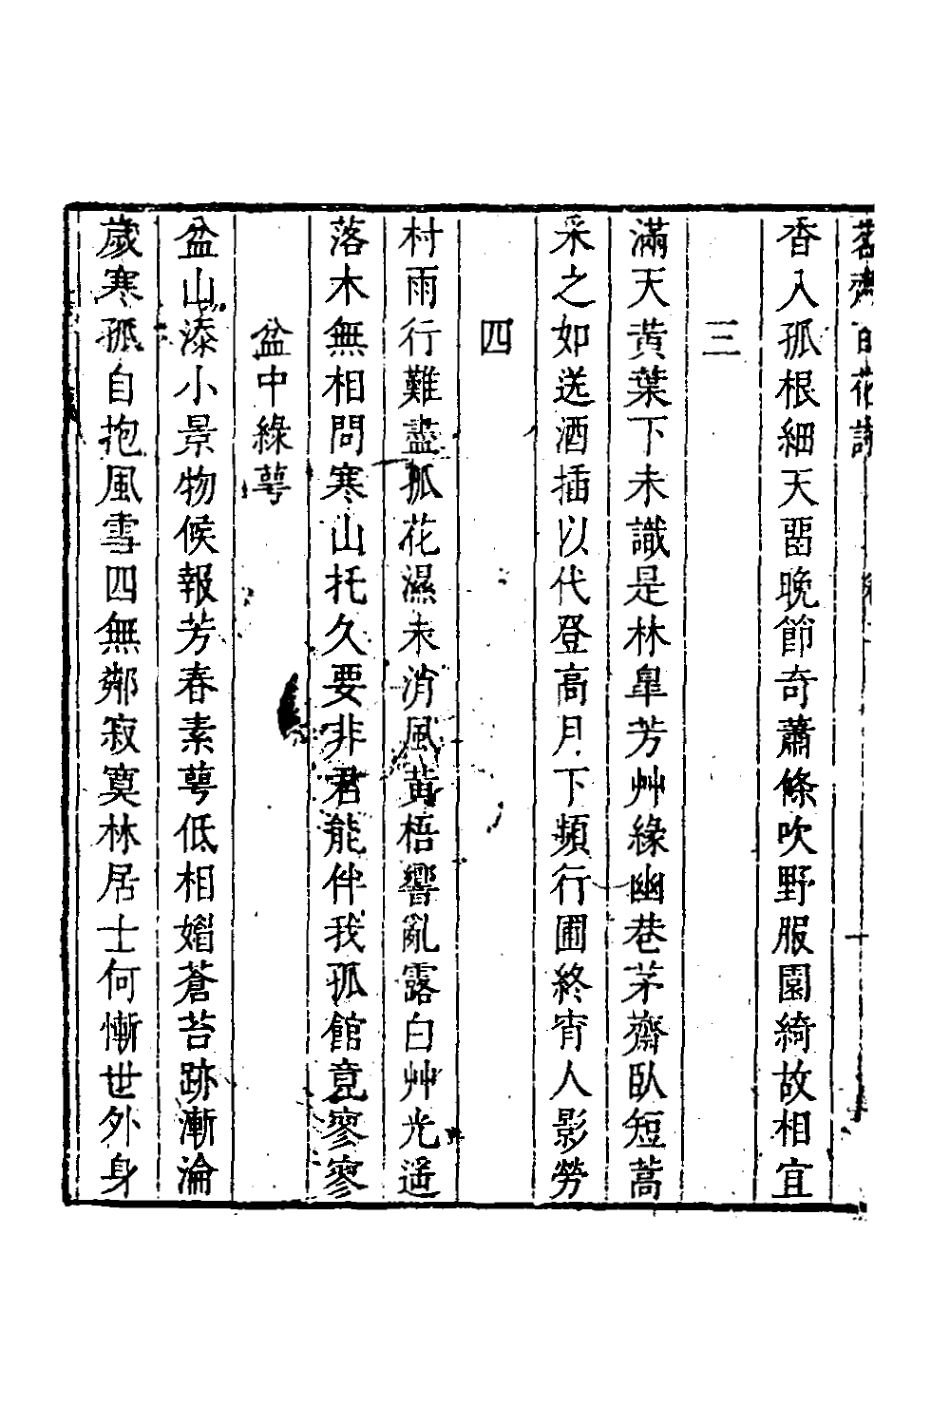 茗齋百花詩
十
香入孤根細天畱晚節奇蕭條吹野服園綺故相宜
三
滿天黃葉下未識是林臯芳艸緣幽巷茅齋臥短蒿
采之如送酒插以代登高月下頻行圃終宵人影勞
四
村雨行難盡孤花濕未消風黃梧響亂露白艸光遙
落木無相問寒山托久要非君能伴我孤館竟寥寥
盆中綠萼
盆山添小景物候報芳春素萼低相媚蒼苔跡漸淪
歲寒孤自抱風雪四無鄰寂寞林居士何慚世外身